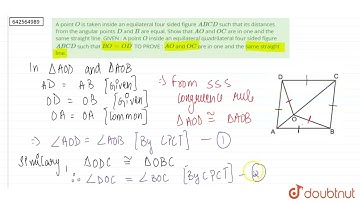 642564989
A point O is taken inside an equilateral four sided figure ABCD such that its distances
from the angular points D and B are equal. Show that AO and OC are in one and the
same straight line. GIVEN : A point O inside an equilateral quadrilateral four sided figure
ABCD such that BO = OD TO PROVE : AO and OC are in one and the same straight
line.
In ΔAOD and ΔAOB
AD = AB [Given]
OD = OB [Given]
OA = OA [Common]
:) From SSS
congruence rule
ΔAOD ≅ ΔAOB
:) ∠AOD = ∠AOB [By CPCT] — ①
Similarly, ΔODC ≅ ΔOBC
∴ ∠DOC = ∠BOC [By CPCT] — ②
D
C
O
A
B
doubtnut